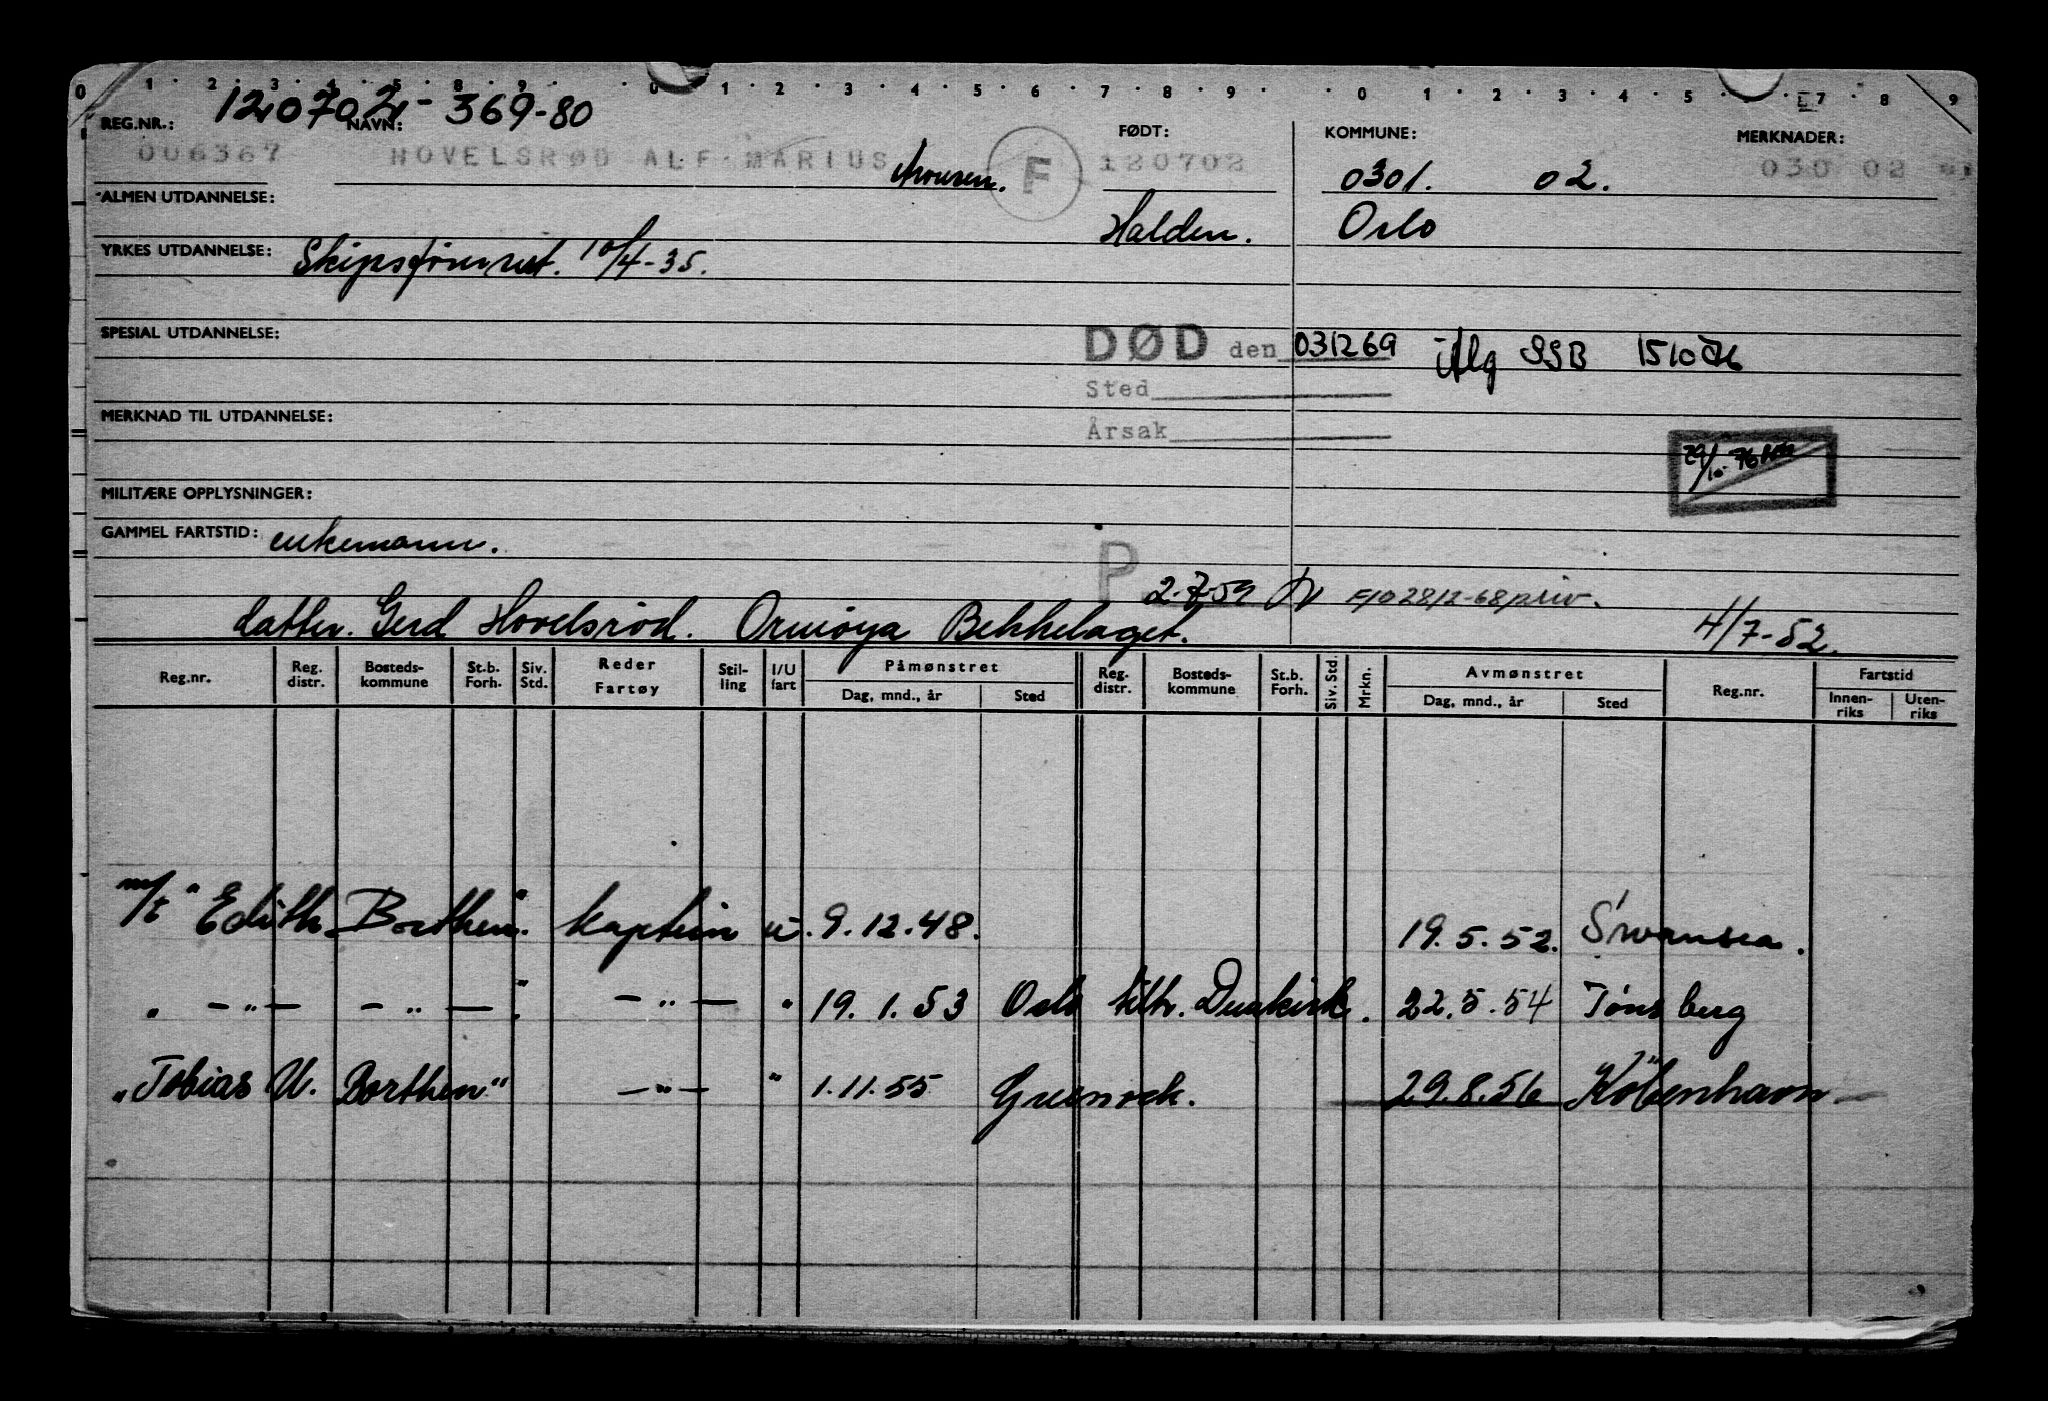 0 1 2 3 4 5 8 9 0 1 2 3 4 5 6 7 8 9 0 1 2 3 4 5 7 8 9
REG.NR.: 120702 - 369-80 NAVN: FØDT: KOMMUNE: MERKNADER:
006367 HOVELSRØD ALF MARIUS F 120702 0301. 02. 030 02
ALMEN UTDANNELSE: Halden. Oslo
YRKES UTDANNELSE: 10/4-35.
SPESIAL UTDANNELSE: DØD den 031269 SSB 151076
Sted
MERKNAD TIL UTDANNELSE: Årsak
29/10-76
MILITÆRE OPPLYSNINGER:
GAMMEL FARTSTID: enkemann.
P 2.7.59 F/O 28/2-68 priv.
datter. Gerd Hovelsrød. Ormøya Bekkelaget. 4/7-52.
Reg.nr. Reg. distr. Bosteds- kommune St.b. Forh. Siv. Std. Reder Fartøy Stil- ling I/U fart Påmønstret Reg. distr. Bosteds- kommune St.b. Forh. Siv. Std. Mrkn. Avmønstret Reg.nr. Fartstid
Dag, mnd., år Sted Dag, mnd., år Sted Innen- riks Uten- riks
m/t "Edith Borthen". kaptein u. 9.12.48. 19.5.52. Swansea.
" -"- -"- " -"- " 19.1.53 Oslo tiltr. Dunkirk. 22.5.54 Tønsberg
"Tobias U. Borthen" -"- " 1.11.55 Greenock. 29.8.56 København